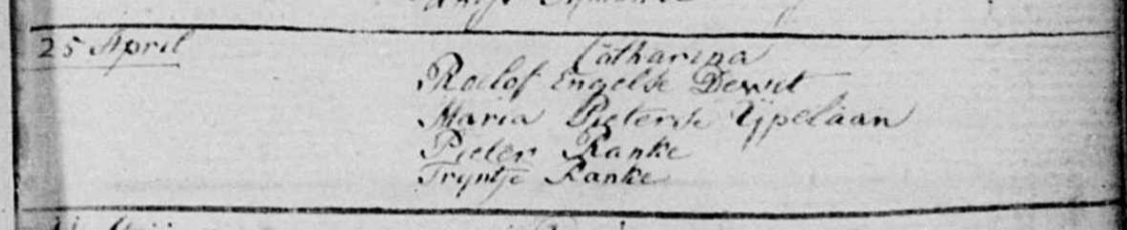 25 April
Catharina
Roelof Engelse Dewit
Maria Pieterse Ypelaan
Pieter Ranke
Tryntje Ranke